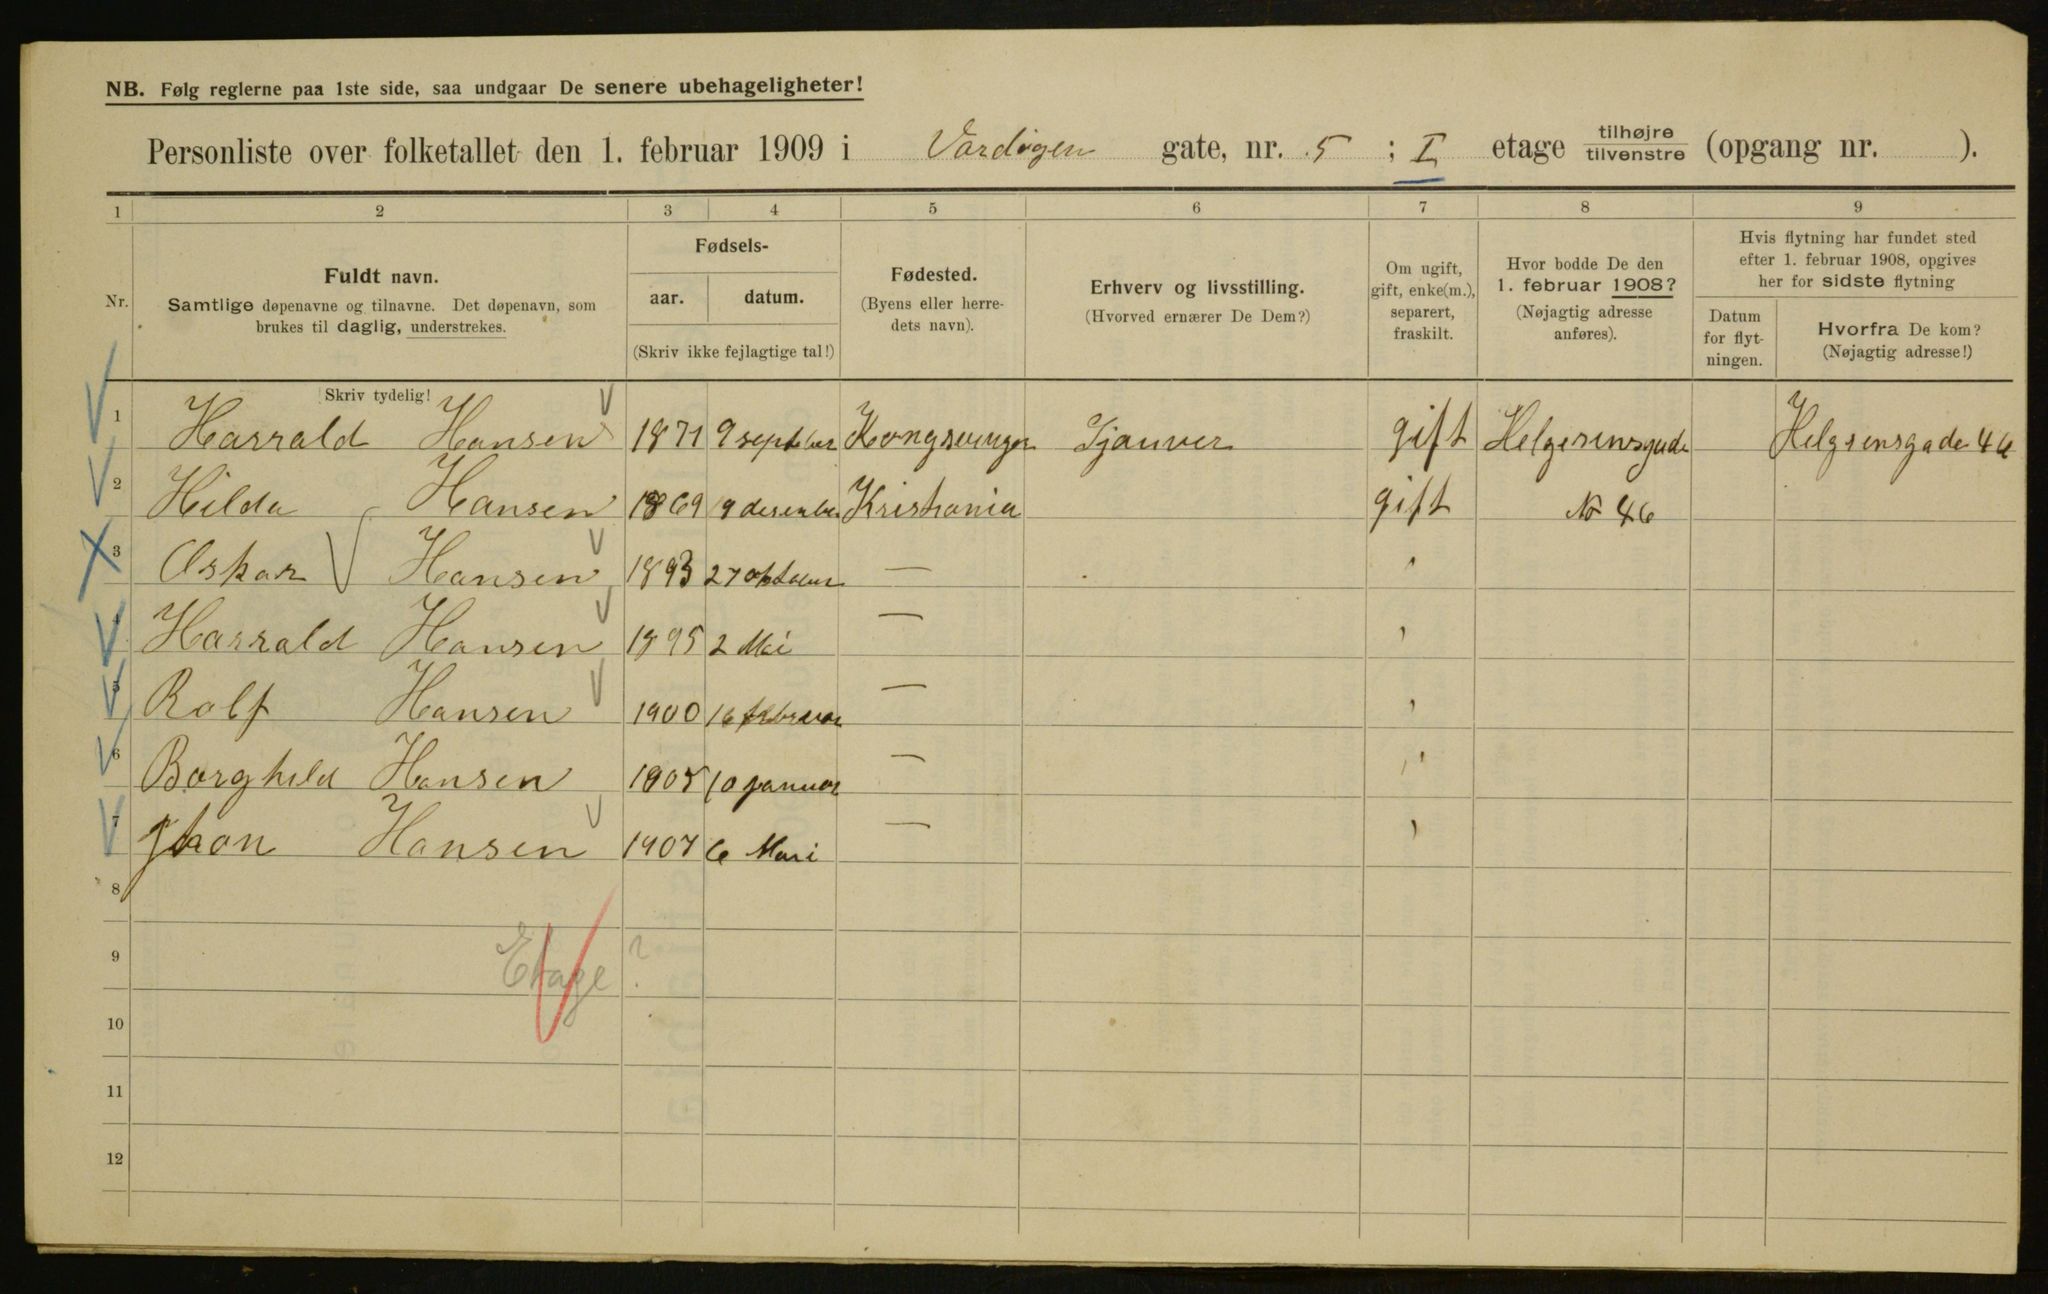 NB. Følg reglerne paa 1ste side, saa undgaar De senere ubehageligheter!
Personliste over folketallet den 1. februar 1909 i Vardøgen gate, nr. 5 ; I etage tilhøjre tilvenstre (opgang nr. ).
1 2 3 4 5 6 7 8 9
Nr.
Fuldt navn.
Samtlige døpenavne og tilnavne. Det døpenavn, som
brukes til daglig, understrekes.
Fødsels-
aar. datum.
(Skriv ikke fejlagtige tal!)
Fødested.
(Byens eller herre-
dets navn).
Erhverv og livsstilling.
(Hvorved ernærer De Dem?)
Om ugift,
gift, enke(m.),
separert,
fraskilt.
Hvor bodde De den
1. februar 1908?
(Nøjagtig adresse
anføres).
Hvis flytning har fundet sted
efter 1. februar 1908, opgives
her for sidste flytning
Datum
for flyt-
ningen.
Hvorfra De kom?
(Nøjagtig adresse!)
Skriv tydelig!
1 Harrald Hansen 1871 9 september Kongsvinger Sjauer gift Helgesensgade Helgesensgade 46
2 Hilda Hansen 1869 9 desember Kristiania gift No 46
3 Oskar Hansen 1893 27 oktober — "
4 Harrald Hansen 1895 2 Mai — "
5 Rolf Hansen 1900 16 februar — "
6 Borghild Hansen 1905 10 januar — "
7 Jhon Hansen 1907 6 — "
8
9 Etage ?
10
11
12